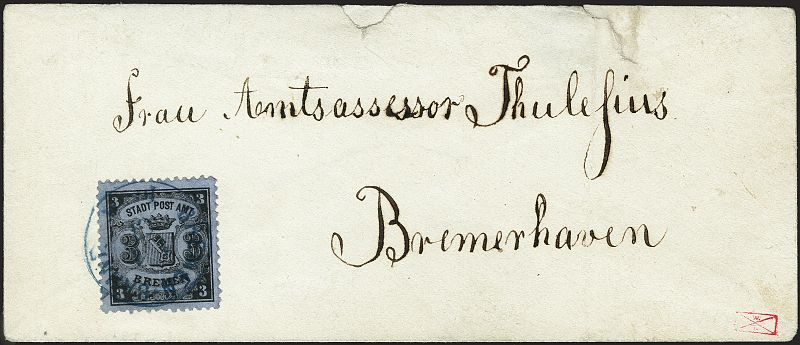 Frau Amtsassessor Thulesius
Bremerhaven
3 3
STADT POST AMT
3 3
BREMEN
3 3